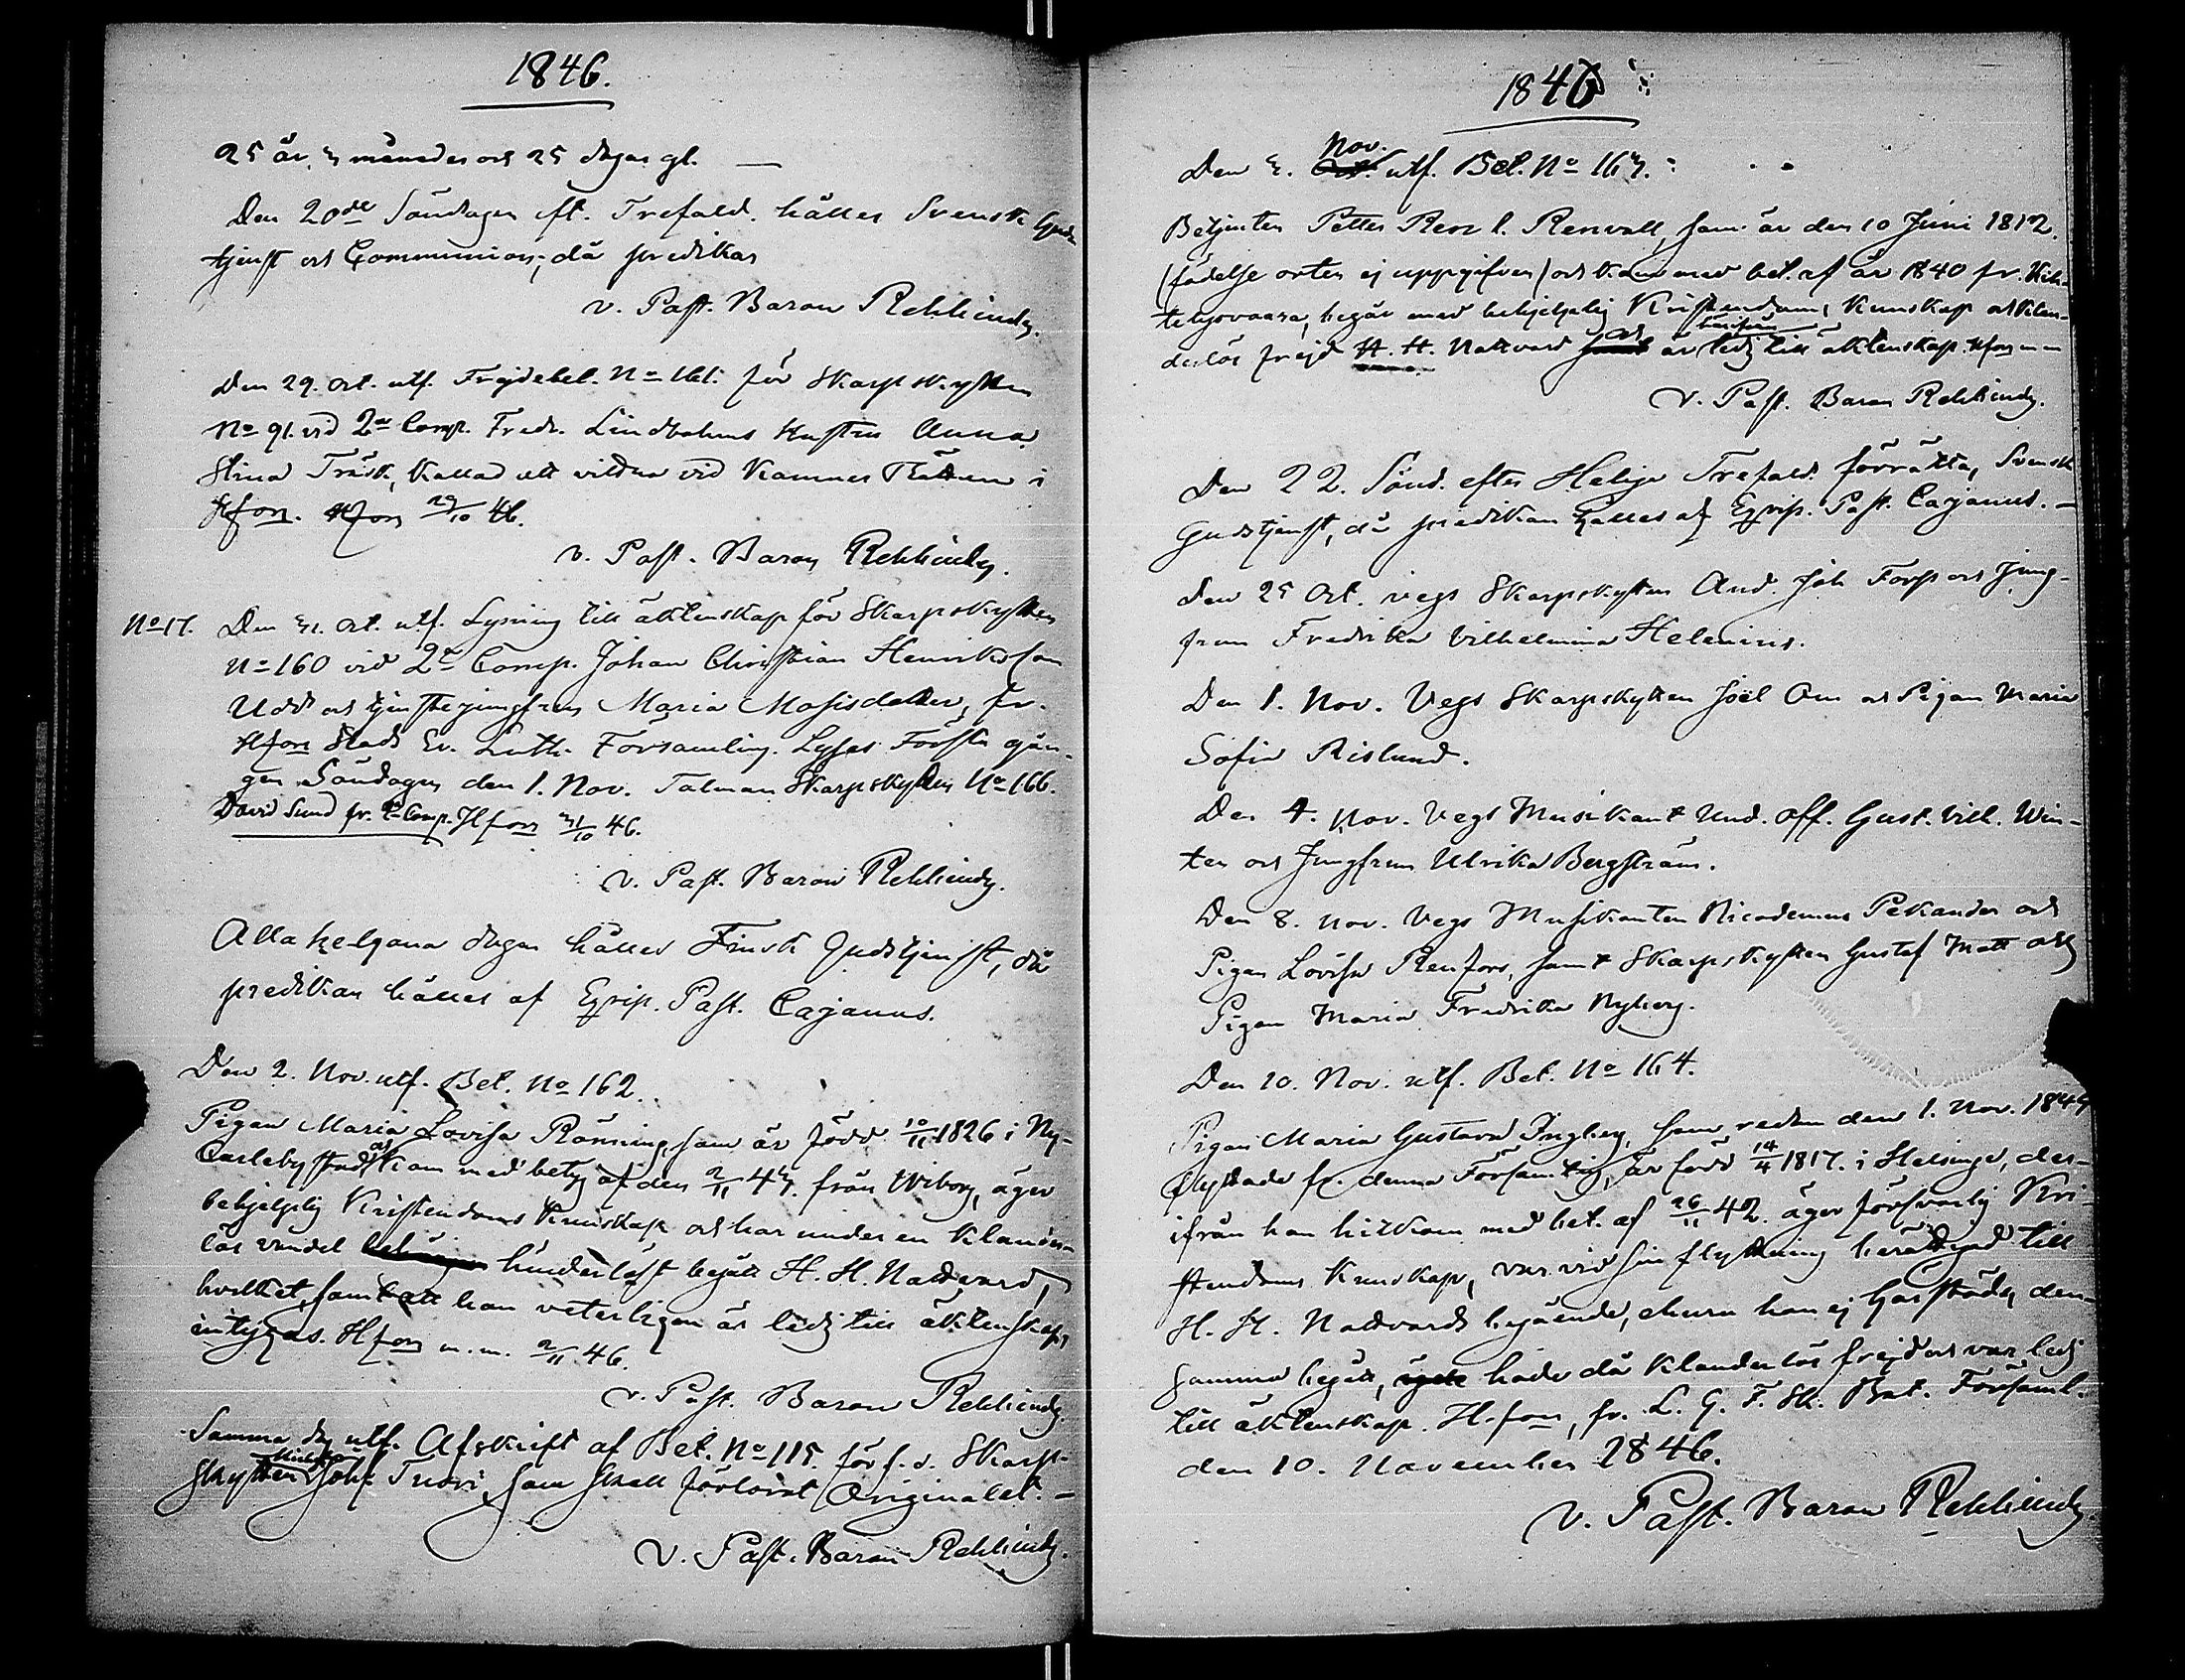 1846.
25 år, 3 månader och 25 dagar gl. —
Den 20de Söndagen eft. Trefald. hålles Svensk Guds
tjenst och Communion; då predikar
v. Past. Baron Rehbinder.
Den 29. Oct. utf. Frejdebet. No 161. för Skarpskytten
No 91. vid 2a Comp. Fredr. Lindholms Hustru Anna
Stina Träsk, kallad att vittna vid Kamners Rätten i
Hfors. Hfors 29/10 46.
v. Past. Baron Rehbinder.
No 17. Den 31. Oct. utf. Lysning till äktenskap för Skarpskytten
No 160 vid 2a Comp. Johan Christian Henriksson
Udd och tjenstejungfrun Maria Mattsdotter, fr.
Hfors Stads Ev. Luth. Församling. Lyses Första gån-
gen Söndagen den 1. Nov. Talman Skarpskytten No 166.
David Sund fr. 2 Comp. Hfors 31/10 46.
v. Past. Baron Rehbinder.
Alla helgona dagen hålles Finsk Gudstjenst, då
predikan hålles af Past. Cajanus.
Den 2. Nov. utf. Bet. No 162.
Pigan Maria Lovisa Rönning, som är född 10/11 1826 i Ny-
Carleby stad och kom med betyg af den 2/11 43. från Wiborg, äger
behjelplig Kristendoms Kunskap och har under en klander-
lös vandel hinderlöst begått H. H. Nattvard,
hvilket, samt att hon veterligen är ledig till äktenskap,
intygas. Hfors m.m. 2/11 46.
v. Past. Baron Rehbinder.
Samma dag utf. Afskrift af Bet. No 115. för f. d. Skarp-
skytten Johs Tuori, som skall förlorat Originalet. —
v. Past. Baron Rehbinder.
1846
Nov.
Den 3. Oct. utf. Bet. No 163.
Betjenten Petter Renvall, som är den 10 Juni 1812.
(födelse orten ej uppgifven) och kom med bet. af år 1840 fr.
begår med behjelplig Kristendoms Kunskap och klan-
derlös frejd H. H. Nattvard och är ledig till äktenskap. Hfors m m
v. Past. Baron Rehbinder.
Den 22. Sönd. efter Helige Trefald. förrättas Svensk
Gudstjenst, då predikan hålles af Past. Cajanus. —
Den 25 Oct. vegs Skarpskytten And. Joh Forss och Jung-
frun Fredrika Vilhelmina Helenius.
Den 1. Nov. Vegs Skarpskytten Joël Om och Pigan Maria
Sofia Rislund.
Den 4. Nov. Vegs Musikant Und. Off. Gust. Vilh. Win-
ter och Jungfrun Ulrika Bergström.
Den 8. Nov. Vegs Musikanten Nicodemus Pekander och
Pigan Lovisa Renfors, samt Skarpskytten Gustaf Matt och
Pigan Maria Fredrika Nyberg.
Den 10. Nov. utf. Bet. No 164.
Pigan Maria Gustava Ingberg, som redan den 1. Nov. 1844
flyttade fr. denna Församling, är född 14/4 1817. i Helsinge, der-
ifrån hon hitkom med bet. af 26/11 42. äger försvarlig Kri-
stendoms Kunskap, var vid sin flyttning berättigad till
H. H. Nattvards begående, ehuru hon ej härstädes den-
samma begått, hade då klanderlös frejd och var ledig
till äktenskap. H.fors, fr. L. G. F. Sk. Bat. Församl.
den 10. November 1846.
v. Past. Baron Rehbinder